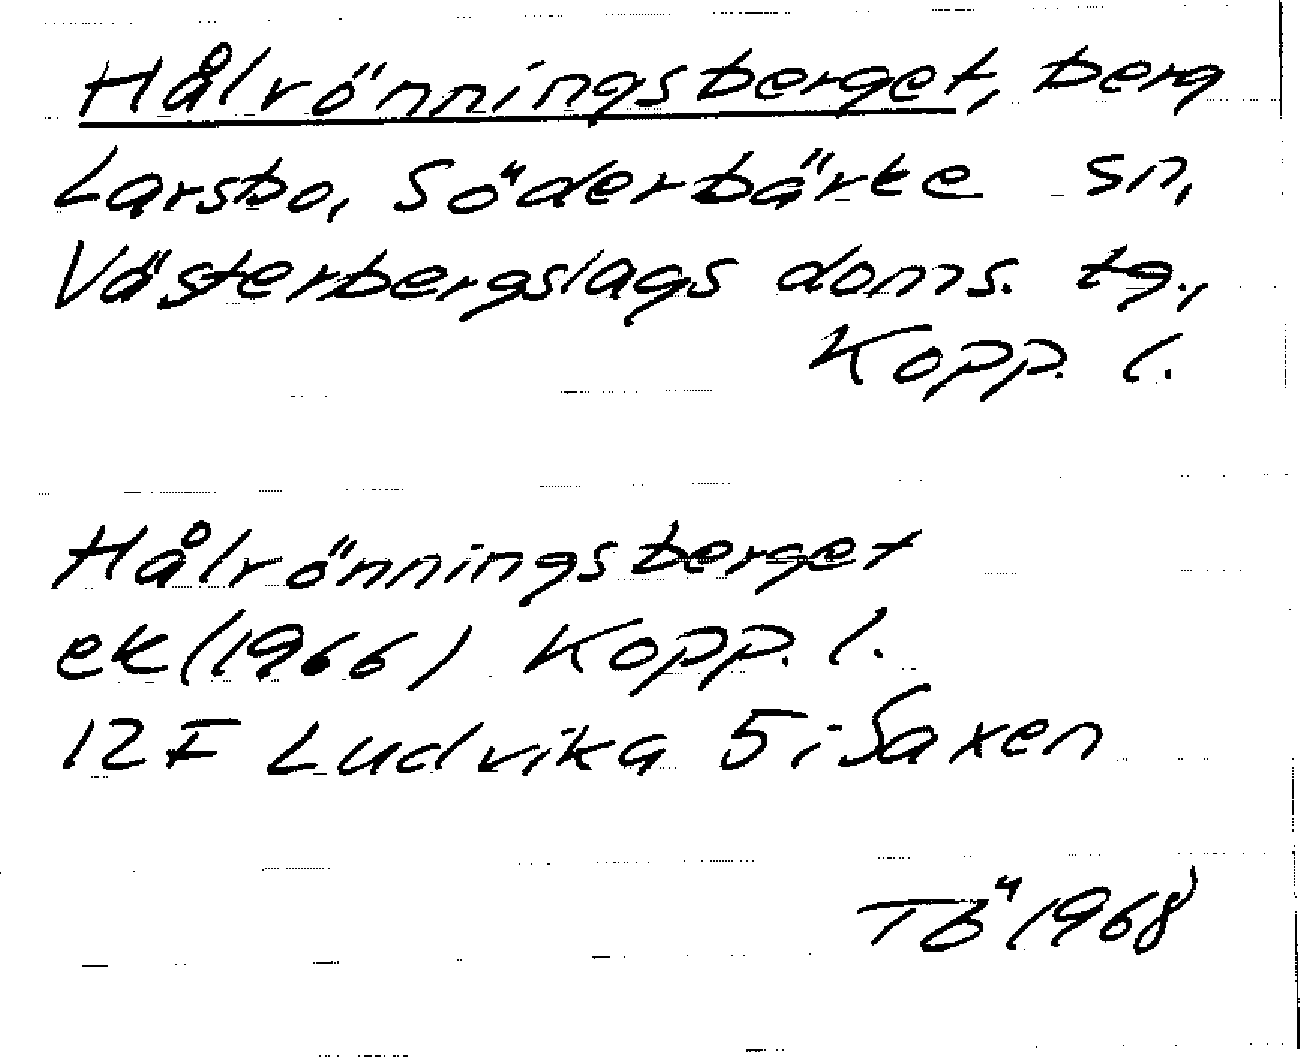 Hålrönningsberget, berg
Larsbo, Söderbärke sn,
Västerbergslags doms. tg.,
Kopp. l.
Hålrönningsberget
ek (1966) Kopp. l.
12F Ludvika 5i Saxen
TÖ 1968